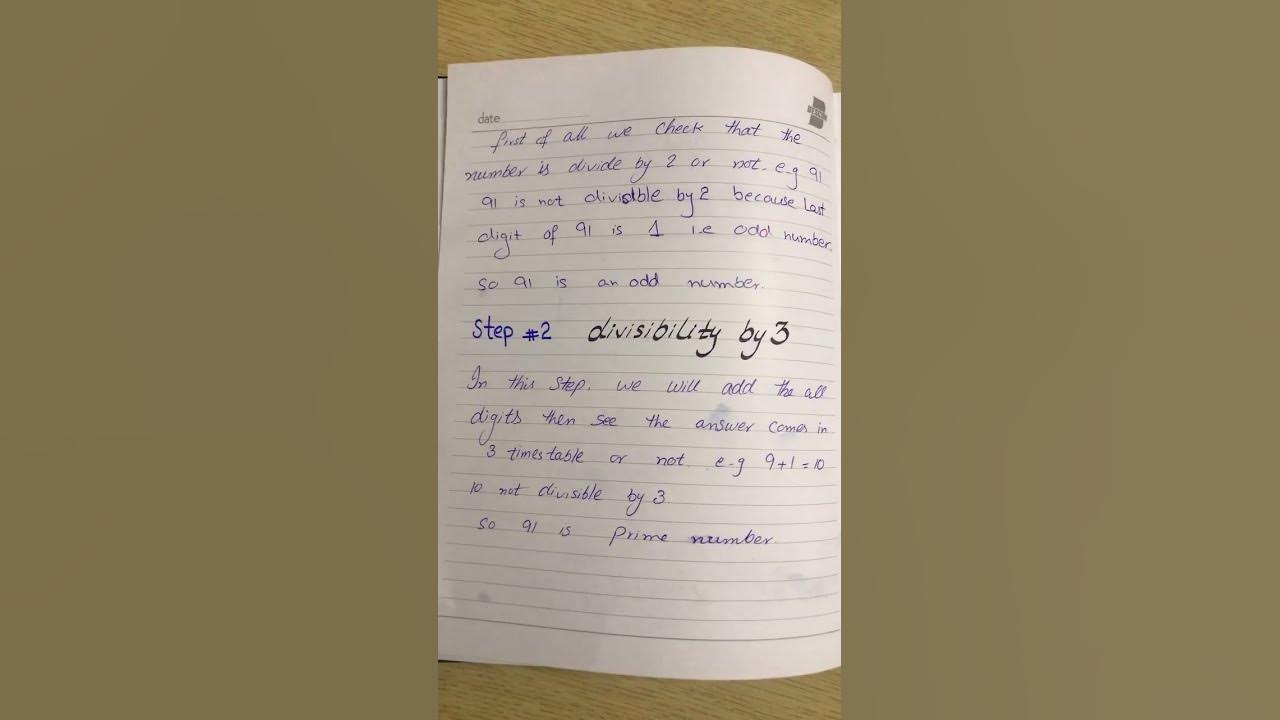 date
first of all we check that the
number is divide by 2 or not. e.g 91
91 is not divisible by 2 because Last
digit of 91 is 1 i.e odd number.
so 91 is an odd number.
Step #2 divisibility by 3
In this step. we will add the all
digits then see the answer comes in
3 times table or not. e-g 9+1=10
10 not divisible by 3
so 91 is prime number.